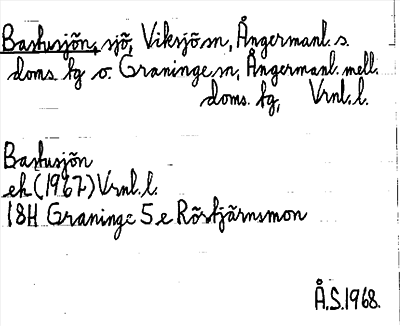 Bastusjön, sjö, Viksjö sn, Ångermanl. s.
doms. tg o. Graninge sn, Ångermanl. mell.
doms. tg, Vrnl. l.
Bastusjön
ek (1967) Vrnl. l.
18H Graninge 5e Röstjärnsmon
Å.S. 1968.